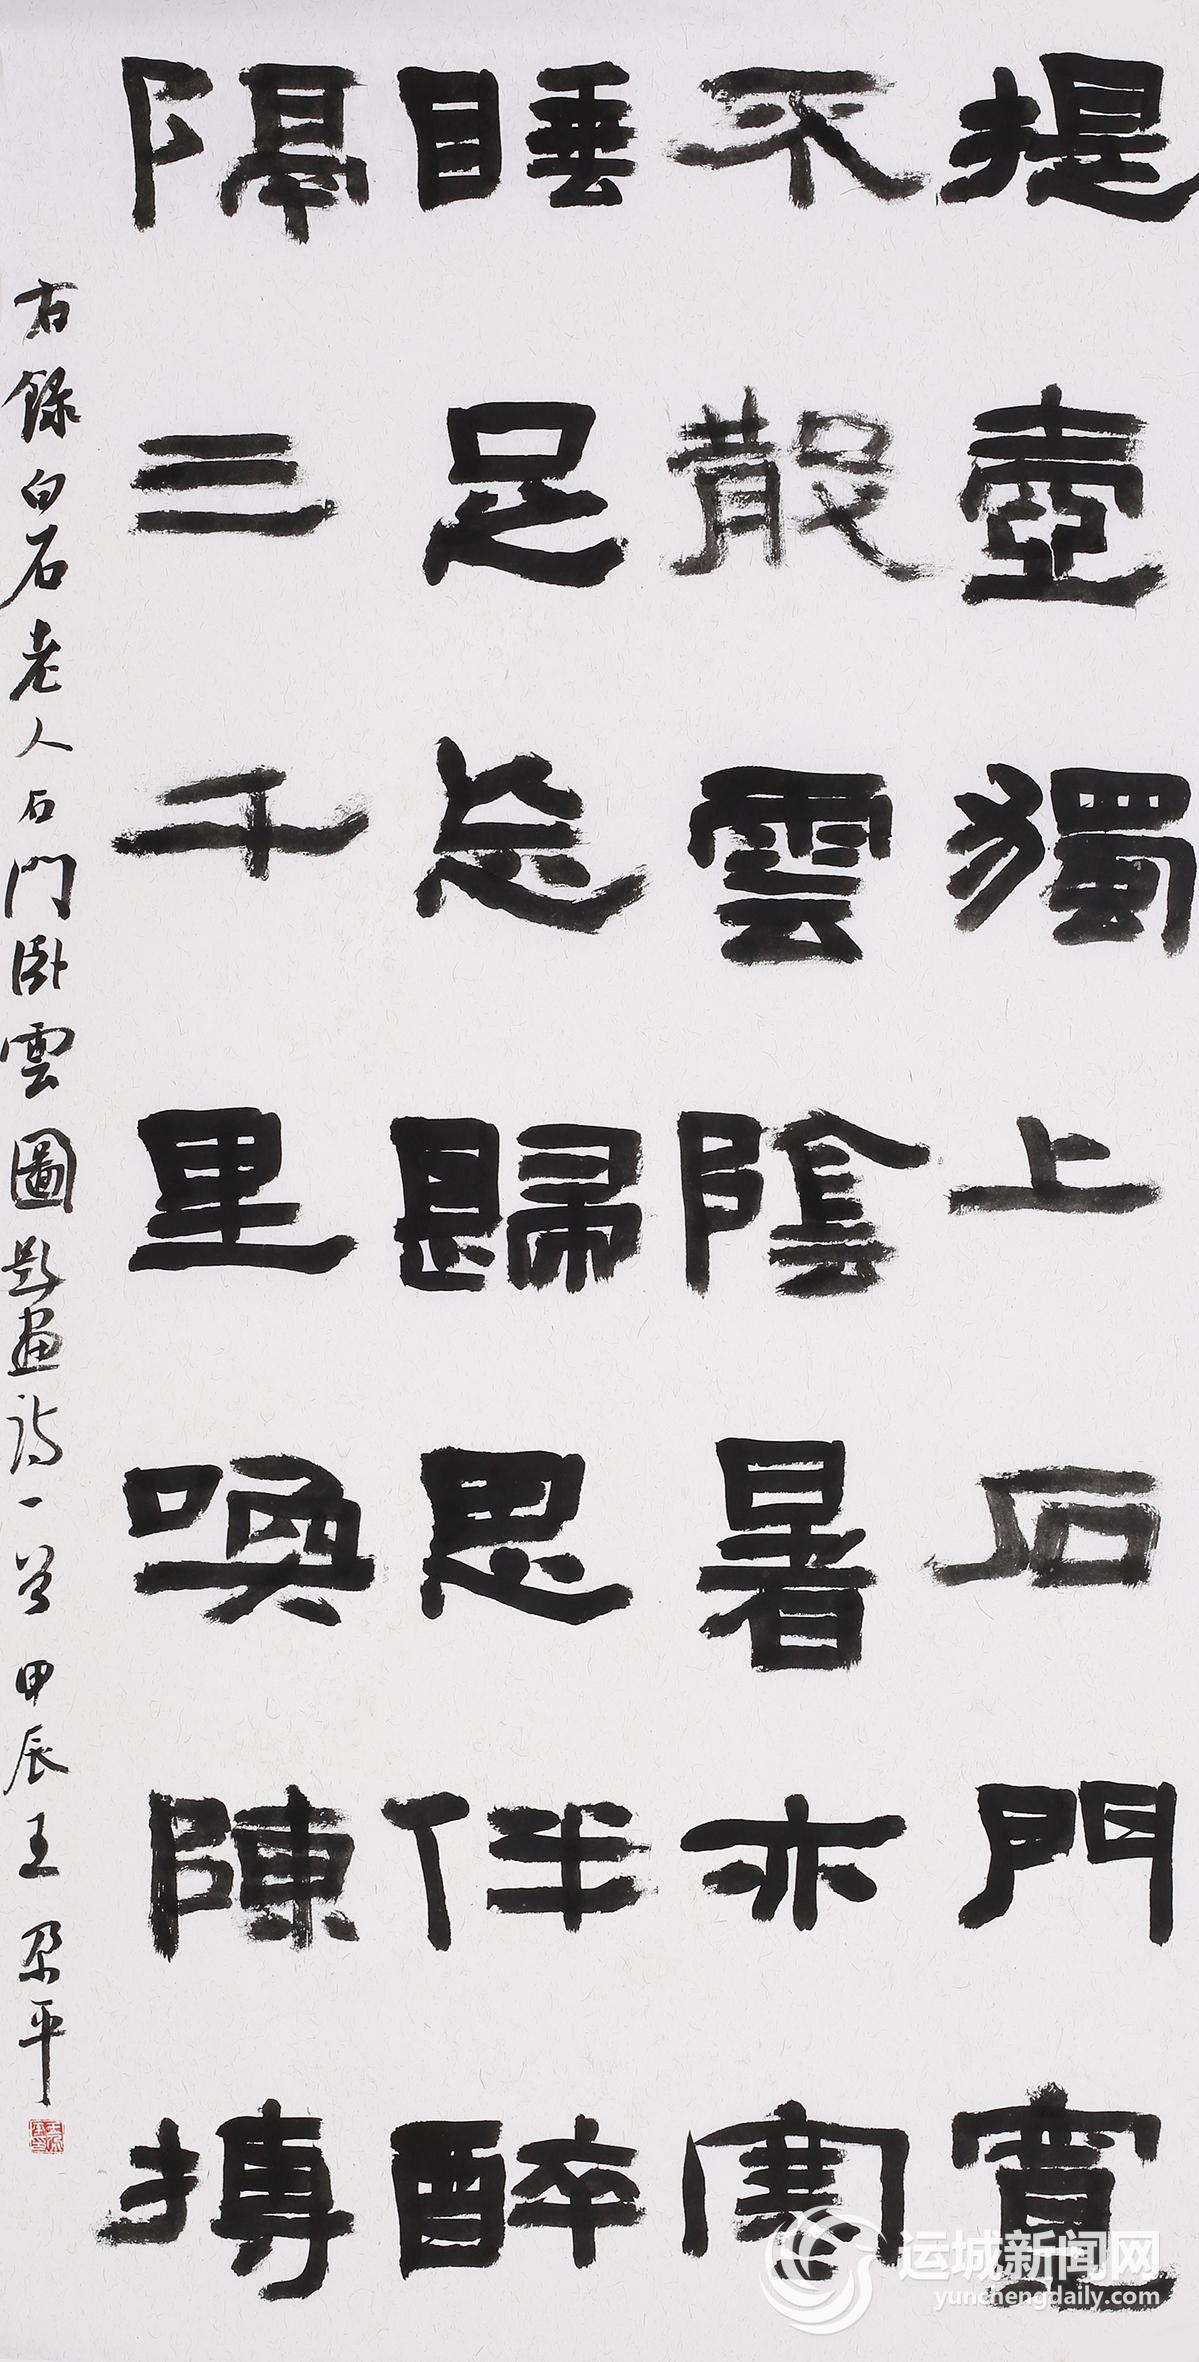 提壺獨上石門寬
不散雲陰暑亦寒
睡足忘歸思伴醉
隔三千里喚陳摶
右錄白石老人石門卧雲圖題畫詩一首甲辰王尕平
运城新闻网
yunchengdaily.com